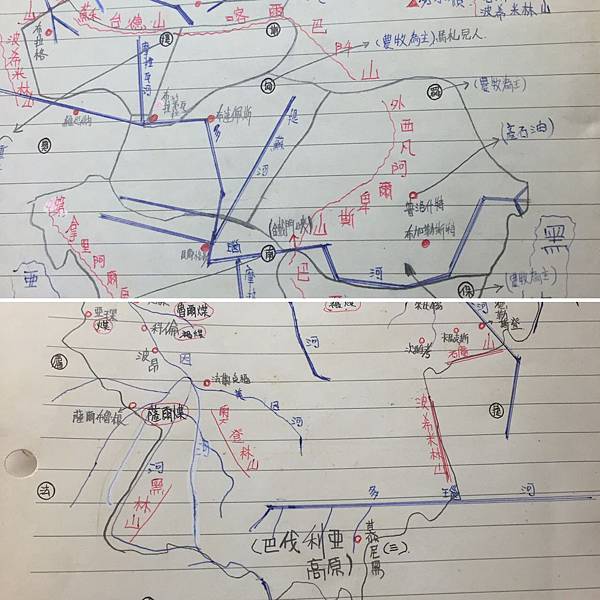 蘇台德山
喀爾巴
波希米林山
布拉格
波希米林山
摩拉瓦河
捷
斯
匈
(農牧為主)馬札兒人
山
羅
(農牧為主)
維也納
布達佩斯
多
提蘇河
外西凡阿爾卑斯山
(產石油)
普洛什特
布加勒斯特
第拿里阿爾
亞
(鐵門峽)
瑙
南
巴
河
黑
保
(農牧為主)
魯爾煤
褐煤
煤
科倫
褐煤
波昂
因
河
法蘭克福
美因河
盧
薩爾布魯根
薩爾煤
奧登林山
河
河
黑林山
法
山
捷
波希米林山
多
瑙
河
(巴伐利亞
高原)
慕尼黑
(三)